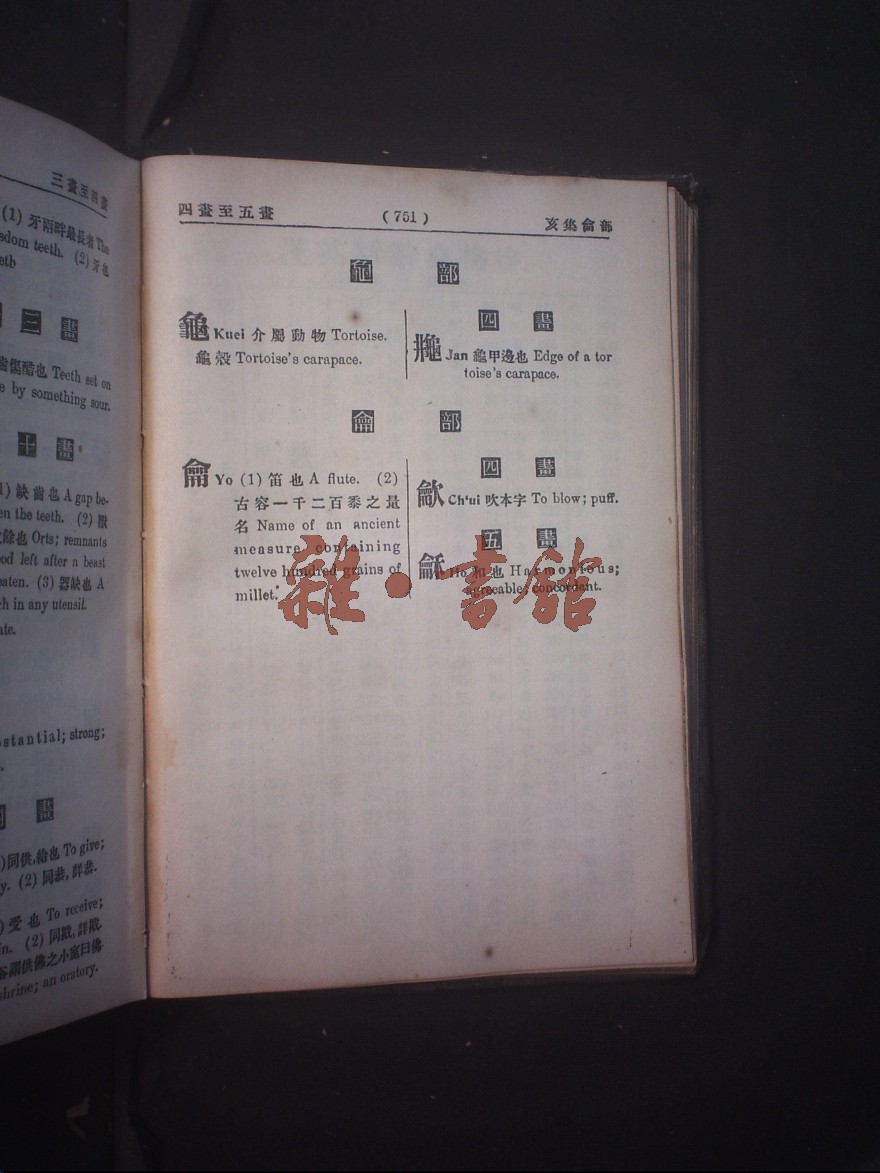 三畫至四畫
(1) 牙兩畔最長者 The
sdom teeth. (2) 牙也
eeth
三 畫
齒傷酷也 Teeth set on
e by something sour.
十 畫
1) 缺齒也 A gap be-
en the teeth. (2) 獸
餘也 Orts; remnants
ood left after a beast
eaten. (3) 器缺也 A
ch in any utensil.
ate.
stantial; strong;
畫
)同供,給也 To give;
y. (2) 同恭,詳恭.
) 受也 To receive;
in. (2) 同戡,詳戡.
俗謂供佛之小室曰佛
shrine; an oratory.
四畫至五畫 (751) 亥集龠部
龜 部
龜 Kuei 介屬動物 Tortoise.
龜殼 Tortoise's carapace.
四 畫
Jan 龜甲邊也 Edge of a tor
toise's carapace.
龠 部
龠 Yo (1) 笛也 A flute. (2)
古容一千二百黍之量
名 Name of an ancient
measure containing
twelve hundred grains of
millet.
四 畫
龡 Ch'ui 吹本字 To blow; puff.
五 畫
龢 Ho 和也 Harmonious;
agreeable; concordant.
雜·書館